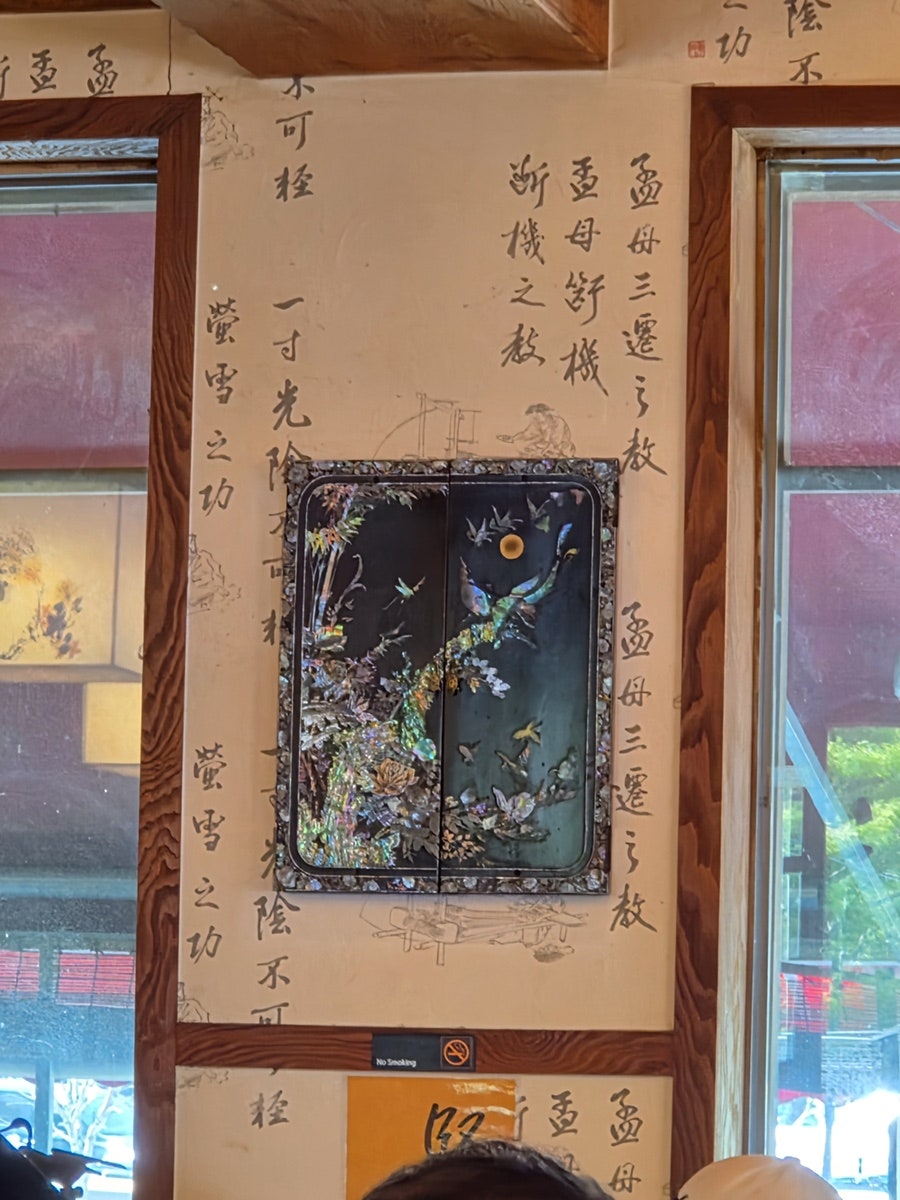 陰不
之功
孟
孟
孟母三遷之教
孟母
機
断機之教
不可軽
一寸光陰不可
螢雪之功
孟母三遷之教
光陰不可軽
螢雪之功
No Smoking
孟母
孟